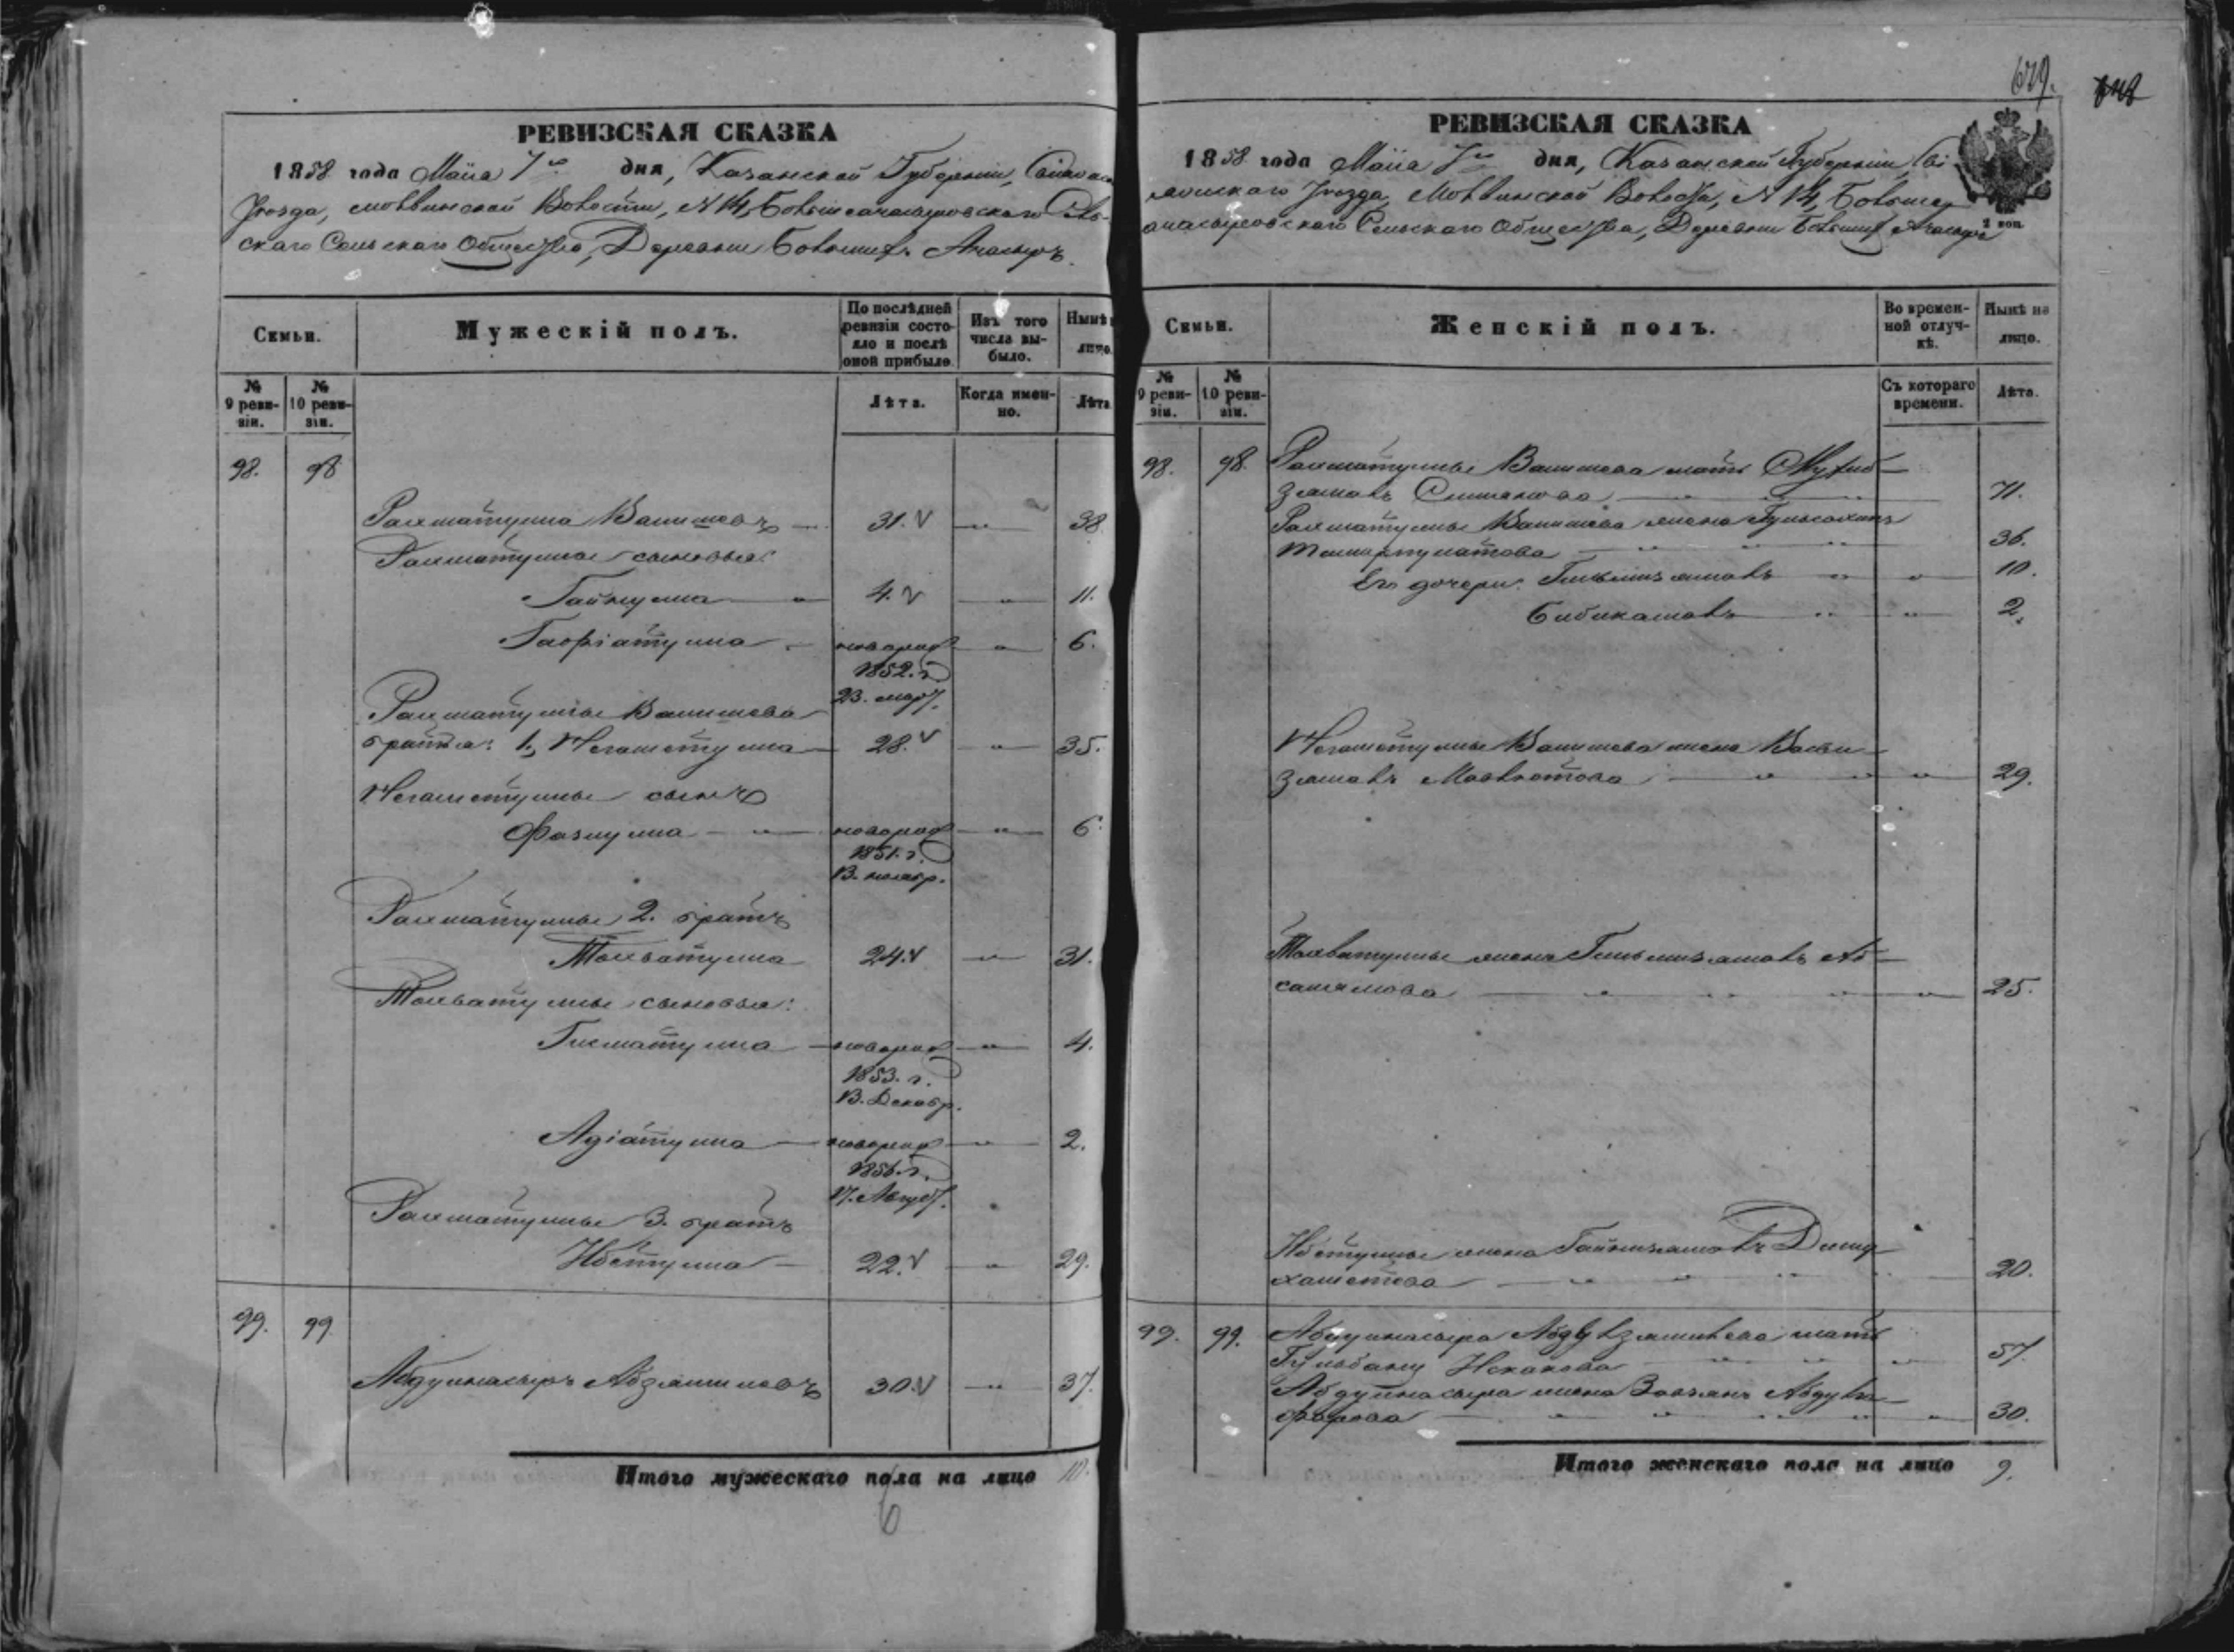 РЕВИЗСКАЯ СКАЗКА
1858 года Маія 7го дня, Казанской Губерніи,
Уѣзда, Молькинской Волости, № 14, Большеачасыровскаго Сель-
скаго Сельскаго Общества, Деревни Большихъ Ачасыръ.
Семьи.
Мужескій полъ.
По послѣдней ревизіи состояло и послѣ оной прибыло.
Изъ того числа выбыло.
Нынѣ на лицо.
№ 9 ревизіи.
№ 10 ревизіи.
Лѣта.
Когда именно.
Лѣта
98. 98
Рахматулла Валишевъ 31. 38.
Рахматуллы сыновья:
Гайнулла 4. 11.
Гафіатулла новорож 6.
1852. г.
23. март.
Рахматуллы Валишева
братья: 1, Негаметулла 28. 35.
Негаметуллы сынъ
Фазлулла новорож 6.
1851. г.
В. ноябр.
Рахматуллы 2. братъ
Тохватулла 24. 31.
Тохватуллы сыновья:
Гисматулла новорож 4.
1853. г.
В. Декабр.
Адіатулла новорож 2.
1856. г.
17. Август.
Рахматуллы 3. братъ
Ибетулла 22. 29.
99. 99.
Абдулнасыръ Абзялиловъ 30. 37.
Итого мужескаго пола на лицо 10.
6
649.
РЕВИЗСКАЯ СКАЗКА
1858 года Маія 7го дня, Казанской Губерніи, Сві
яжскаго Уѣзда, Молькинской Волости, № 14, Больше
ачасыровскаго Сельскаго Общества, Деревни Большихъ Ачасыръ
2 коп.
Семьи.
Женскій полъ.
Во временной отлучкѣ.
Нынѣ на лицо.
№ 9 ревизіи.
№ 10 ревизіи.
Съ котораго времени.
Лѣта.
98. 98. Рахматуллы Валишева мать
71.
Рахматуллы Валишева жена
36.
Его дочери: 10.
Бибикамаль 2.
Негаметуллы Валишева жена
29.
Тохватуллы жена Гильмизямаль Аб-
салямова 25.
Ибетуллы жена Гайнизямаль
20.
99. 99. Абдулнасыра мать
Гульбану Исхакова 57.
Абдулнасыра жена Абдулга-
фарова 30.
Итого женскаго пола на лицо 9.